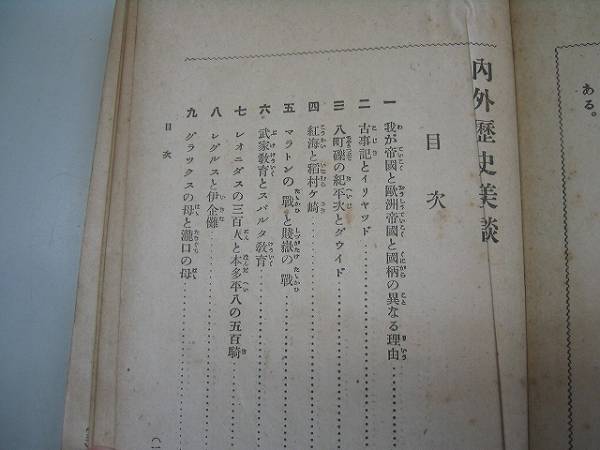 ある。
內外歷史美談
目次
一 我が帝國と歐洲帝國と國柄の異なる理由
二 古事記とイリヤッド
三 八町礫の紀平次とダウイド
四 紅海と稻村ケ崎
五 マラトンの戰と賤嶽の戰
六 武家敎育とスパルタ敎育
七 レオニダスの三百人と本多平八の五百騎
八 レグルスと伊企儺
九 グラックスの母と瀧口の母
目次